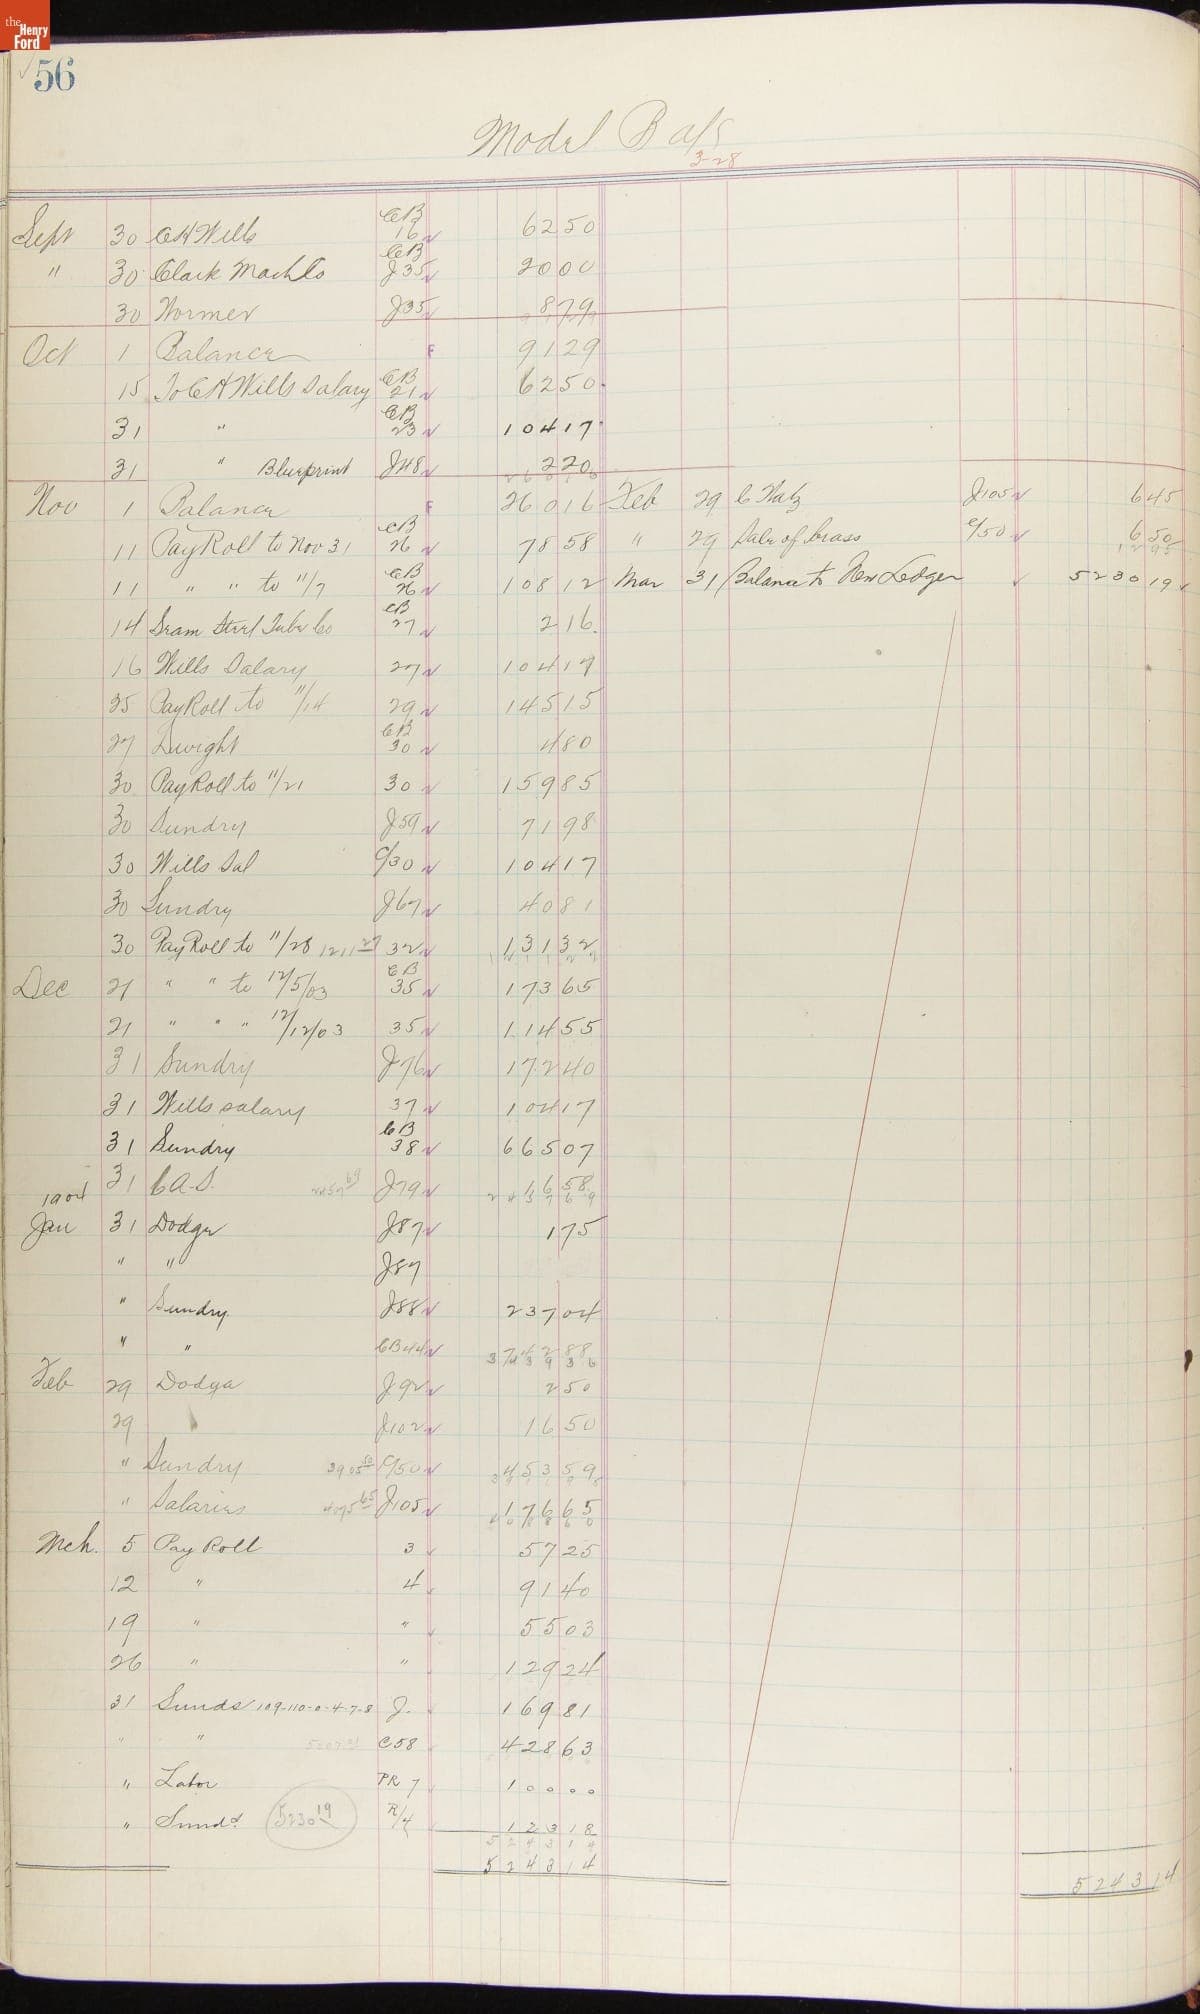 the Henry Ford
56
Model B a/c
3-28
Sept 30 CH Wills CB 16 62 50
" 30 Clark Mach Co CB J35 20 00
30 Wormer J35 8 79
Oct 1 Balance F 91 29
15 To CH Wills Salary CB 21 62 50
31 " CB 23 104 17
31 " Blueprint J48 2 20
Nov 1 Balance F 260 16
11 Pay Roll to Nov 31 CB 26 78 58
11 " " to 11/7 CB 26 108 12
14 Seam Steel Tube Co CB 27 2 16
16 Wills Salary 27 104 17
25 Pay Roll to 11/14 29 145 15
27 Dwight CB 30 4 80
30 Pay Roll to 11/21 30 159 85
30 Sundry J59 71 98
30 Wills Sal C/30 104 17
30 Sundry J67 40 81
30 Pay Roll to 11/28 1211 27 32 131 32
Dec 21 " " to 12/5/03 CB 35 173 65
21 " " " 12/12/03 35 114 55
31 Sundry J76 172 40
31 Wills salary 37 104 17
31 Sundry CB 38 665 07
31 C.A.S. 2457 69 J79 16 58
2457 69
1904
Jan 31 Dodge J87 1 75
" " J87
" Sundry J88 237 04
" " CB44 742 88
3439 36
Feb 29 Dodge J92 2 50
29 J102 16 50
" Sundry C/50 453 59
" Salaries 4075 65 J105 176 65
Mch. 5 Pay Roll 3 57 25
12 " 4 91 40
19 " " 55 03
26 " " 129 24
31 Sunds 109-110-0-4-7-8 J. 169 81
" " C58 428 63
" Labor PR 7 100 00
" Sunds 5230 19 R/4 123 18
5243 14
5243 14
Feb 29 J105 6 45
" 29 Sale of brass C/50 6 50
12 95
Mar 31 Balance to New Ledger 5230 19
5243 14